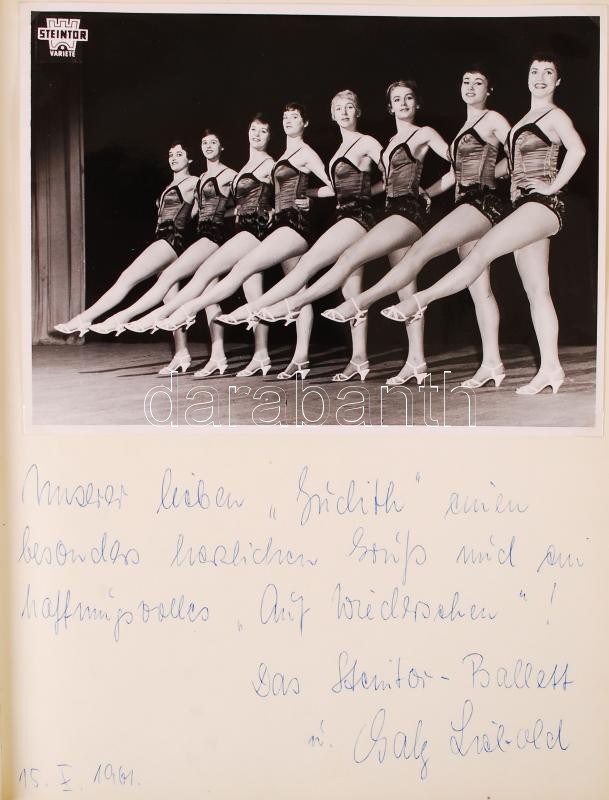 STEINTOR
VARIETÉ
darabanth
Unserer lieben „Judith" einen
besonders herzlichen Gruß und ein
hoffnungsvolles „Auf Wiedersehen"!
Das Steintor-Ballett
u.
15. V. 1961.